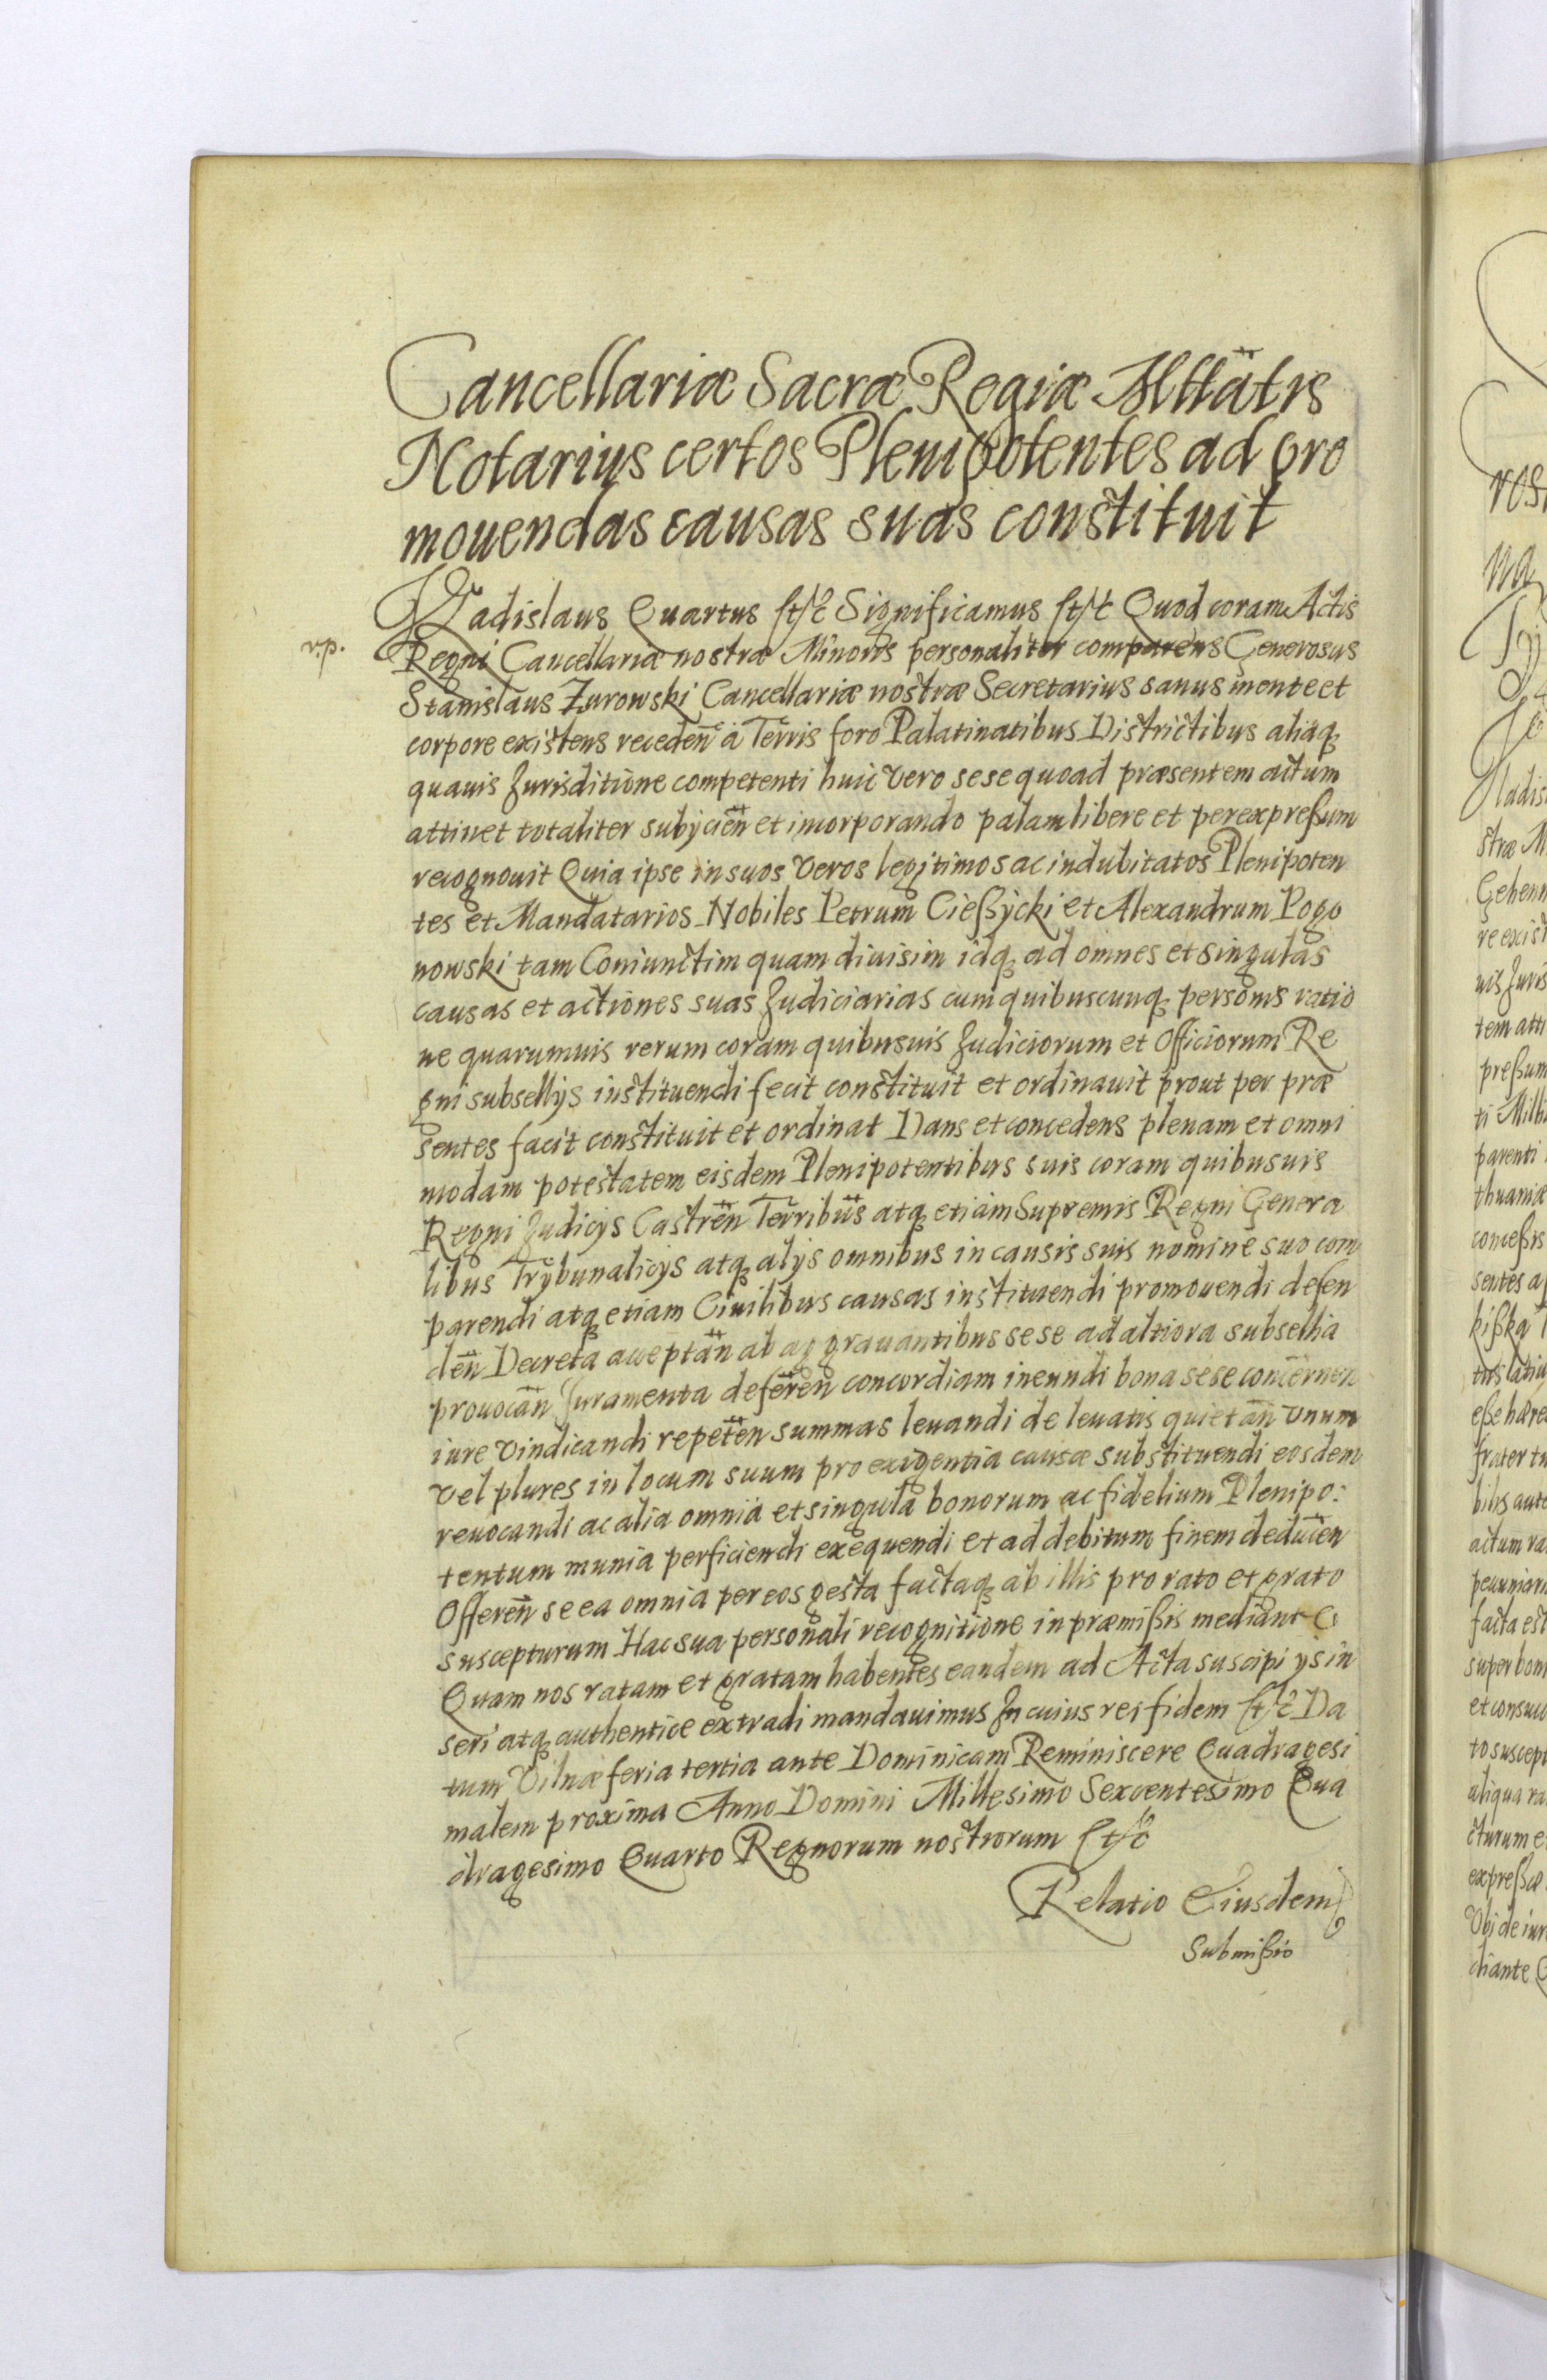 Cancellariæ Sacræ Regiæ Mttãtis
Notarius certos Plenipotentes ad pro
mouendas causas suas constituit
Vladislaus Quartus etc Significamus etc Quod coram Actis
v.p.
Regni Cancellariæ nostræ Minoris personaliter comparens Generosus
Stanislaus Zurowski Cancellariæ nostræ Secretarius sanus mente et
corpore existens receden̄ a Terris foro Palatinatibus Districtibus aliaq
quauis Jurisditione competenti huic vero sese quoad præsentem actum
attinet totaliter subÿcien̄ et incorporando palam libere et per expreßum
recognouit Quia ipse in suos veros legitimos ac indubitatos Plenipoten
tes et Mandatarios Nobiles Petrum Cießÿcki et Alexandrum Pogo
nowski tam Coniunctim quam diuisim idq ad omnes et singulas
causas et actiones suas Judiciarias cum quibuscunq personis ratio
ne quarumuis rerum coram quibusuis Judiciorum et Officiorum Re
gni subsellijs instituendi fecit constituit et ordinauit prout per præ
sentes facit constituit et ordinat Dans et concedens plenam et omni
modam potestatem eisdem Plenipotentibus suis coram quibusuis
Regni Judicijs Castren̄ Terribus atq etiam Supremis Regni Genera
libus Trÿbunalicijs atq alijs omnibus in causis suis nomine suo com
parendi atq etiam Ciuilibus causas instituendi promouendi defen
den̄ Decreta acceptan̄ ab aggrauantibus sese ad altiora subsellia
prouocan̄ Juramenta deferen̄ concordiam ineundi bona sese concernen
iure vindicandi repeten̄ summas leuandi de leuatis quietan̄ vnum
vel plures in locum suum pro exigentia causæ substituendi eosdem
reuocandi ac alia omnia et singula bonorum ac fidelium Plenipo:
tentum munia perficiendi exequendi et ad debitum finem deducen̄
Offeren̄ se ea omnia per eos gesta factaq ab illis pro rato et grato
suscepturum Hac sua personali recognitione in præmißis mediante
Quam nos ratam et gratam habentes eandem ad Acta suscipi ijs in
seri atq authentice extradi mandauimus In cuius rei fidem etc Da
tum Vilnæ feria tertia ante Dominicam Reminiscere Quadragesi
malem proxima Anno Domini Millesimo Sexcentesimo Qua
dragesimo Quarto Regnorum nostrorum etc
Relatio Eiusdem
Submißio